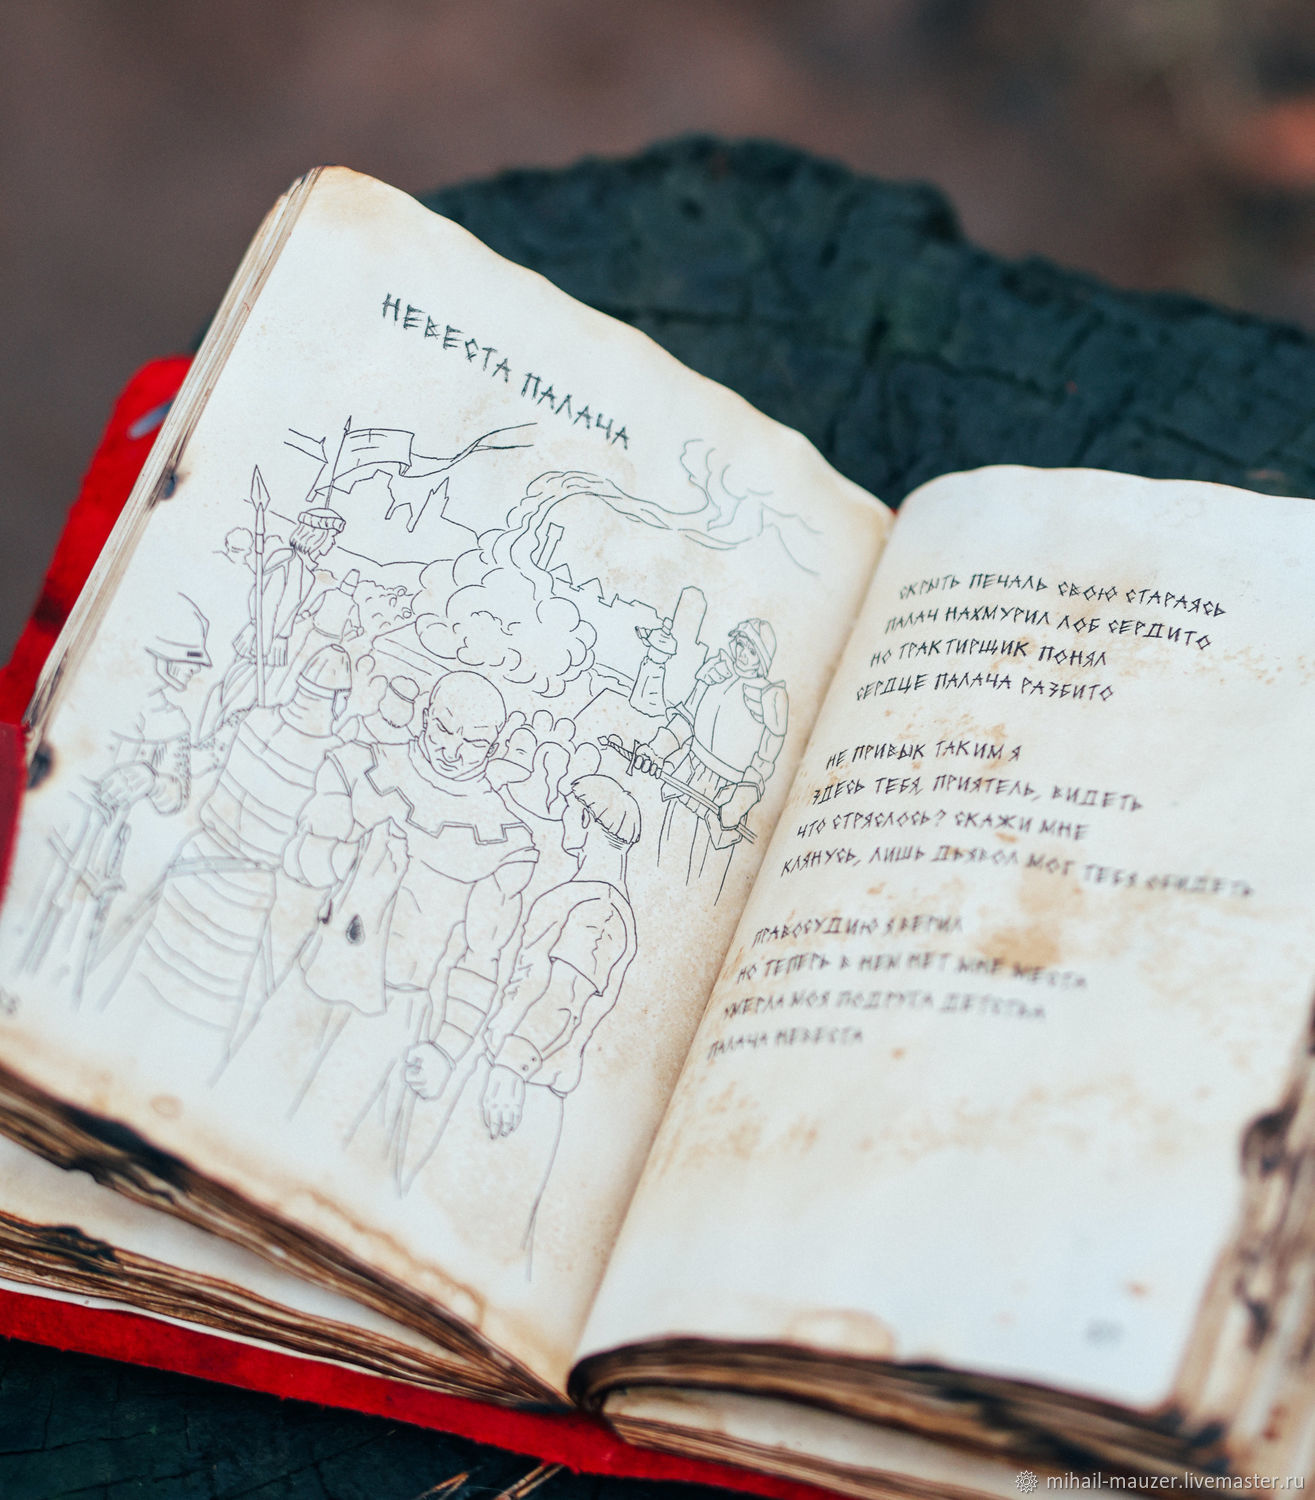 НЕВЕСТА ПАЛАЧА
СКРЫТЬ ПЕЧАЛЬ СВОЮ СТАРАЯСЬ
ПАЛАЧ НАХМУРИЛ ЛОБ СЕРДИТО
НО ТРАКТИРЩИК ПОНЯЛ
СЕРДЦЕ ПАЛАЧА РАЗБИТО
НЕ ПРИВЫК ТАКИМ Я
ЗДЕСЬ ТЕБЯ, ПРИЯТЕЛЬ, ВИДЕТЬ
ЧТО СТРЯСЛОСЬ? СКАЖИ МНЕ
КЛЯНУСЬ, ЛИШЬ ДЬЯВОЛ МОГ ТЕБЯ ОБИДЕТЬ
ПРАВОСУДИЮ Я ВЕРИЛ
НО ТЕПЕРЬ В НЕМ НЕТ МНЕ МЕСТА
УМЕРЛА МОЯ ПОДРУГА ДЕТСТВА
ПАЛАЧА НЕВЕСТА
mihail-mauzer.livemaster.ru